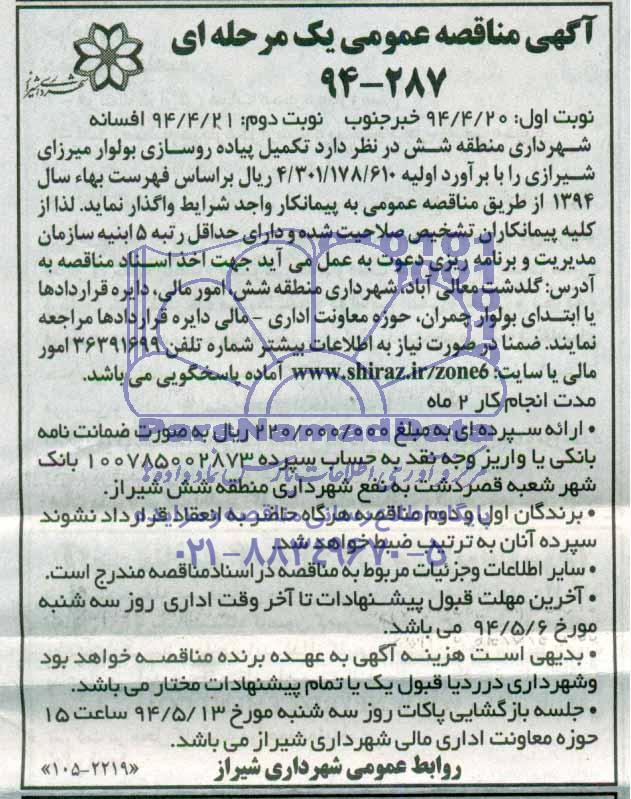 آگهی مناقصه عمومی یک مرحله ای
۹۴-۲۸۷
شهرداری شیراز
نوبت اول: ۹۴/۴/۲۰ خبرجنوب نوبت دوم: ۹۴/۴/۲۱ افسانه
شهرداری منطقه شش در نظر دارد تکمیل پیاده روسازی بولوار میرزای
شیرازی را با برآورد اولیه ۴/۳۰۱/۱۷۸/۶۱۰ ریال براساس فهرست بهاء سال
۱۳۹۴ از طریق مناقصه عمومی به پیمانکار واجد شرایط واگذار نماید. لذا از
کلیه پیمانکاران تشخیص صلاحیت شده و دارای حداقل رتبه ۵ ابنیه سازمان
مدیریت و برنامه ریزی دعوت به عمل می آید جهت اخذ اسناد مناقصه به
آدرس: گلدشت معالی آباد، شهرداری منطقه شش، امور مالی، دایره قراردادها
یا ابتدای بولوار چمران، حوزه معاونت اداری - مالی دایره قراردادها مراجعه
نمایند. ضمنا در صورت نیاز به اطلاعات بیشتر شماره تلفن ۳۶۳۹۱۶۹۹ امور
مالی یا سایت: www.shiraz.ir/zone6 آماده پاسخگویی می باشد.
مدت انجام کار ۲ ماه
• ارائه سپرده ای به مبلغ ۲۲۰/۰۰۰/۰۰۰ ریال به صورت ضمانت نامه
بانکی یا واریز وجه نقد به حساب سپرده ۱۰۰۷۸۵۰۰۲۸۷۳ بانک
شهر شعبه قصردشت به نفع شهرداری منطقه شش شیراز.
• برندگان اول و دوم مناقصه هرگاه حاضر به انعقاد قرارداد نشوند
سپرده آنان به ترتیب ضبط خواهد شد.
• سایر اطلاعات وجزئیات مربوط به مناقصه در اسناد مناقصه مندرج است.
• آخرین مهلت قبول پیشنهادات تا آخر وقت اداری روز سه شنبه
مورخ ۹۴/۵/۶ می باشد.
• بدیهی است هزینه آگهی به عهده برنده مناقصه خواهد بود
وشهرداری درردیا قبول یک یا تمام پیشنهادات مختار می باشد.
• جلسه بازگشایی پاکات روز سه شنبه مورخ ۹۴/۵/۱۳ ساعت ۱۵
حوزه معاونت اداری مالی شهرداری شیراز می باشد.
روابط عمومی شهرداری شیراز
«۱۰۵-۲۲۱۹»
ParsNamadData
۰۲۱-۸۸۳۴۹۶۷۰-۵